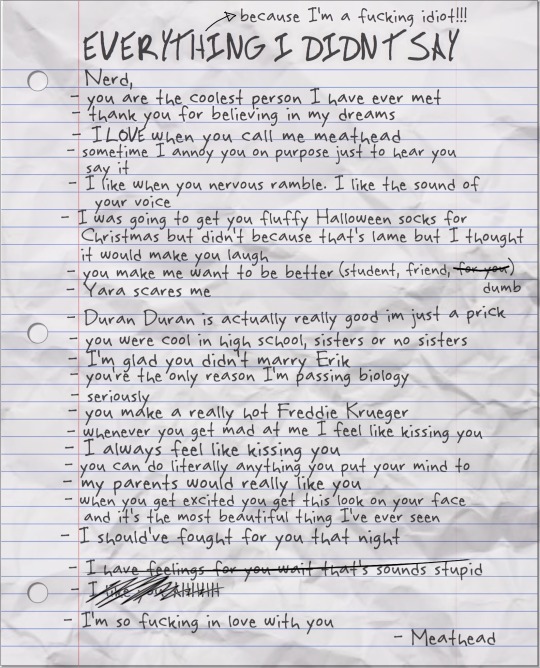 because I'm a fucking idiot!!!
EVERYTHING I DIDN'T SAY
Nerd,
- you are the coolest person I have ever met
- thank you for believing in my dreams
- I LOVE when you call me meathead
- sometime I annoy you on purpose just to hear you
say it
- I like when you nervous ramble. I like the sound of
your voice
- I was going to get you fluffy Halloween socks for
Christmas but didn't because that's lame but I thought
it would make you laugh
- you make me want to be better (student, friend, for you)
dumb
- Yara scares me
- Duran Duran is actually really good im just a prick
- you were cool in high school, sisters or no sisters
- I'm glad you didn't marry Erik
- you're the only reason I'm passing biology
- seriously
- you make a really hot Freddie Krueger
- whenever you get mad at me I feel like kissing you
- I always feel like kissing you
- you can do literally anything you put your mind to
- my parents would really like you
- when you get excited you get this look on your face
and it's the most beautiful thing I've ever seen
- I should've fought for you that night
- I have feelings for you wait that's sounds stupid
- I like you
- I'm so fucking in love with you
- Meathead